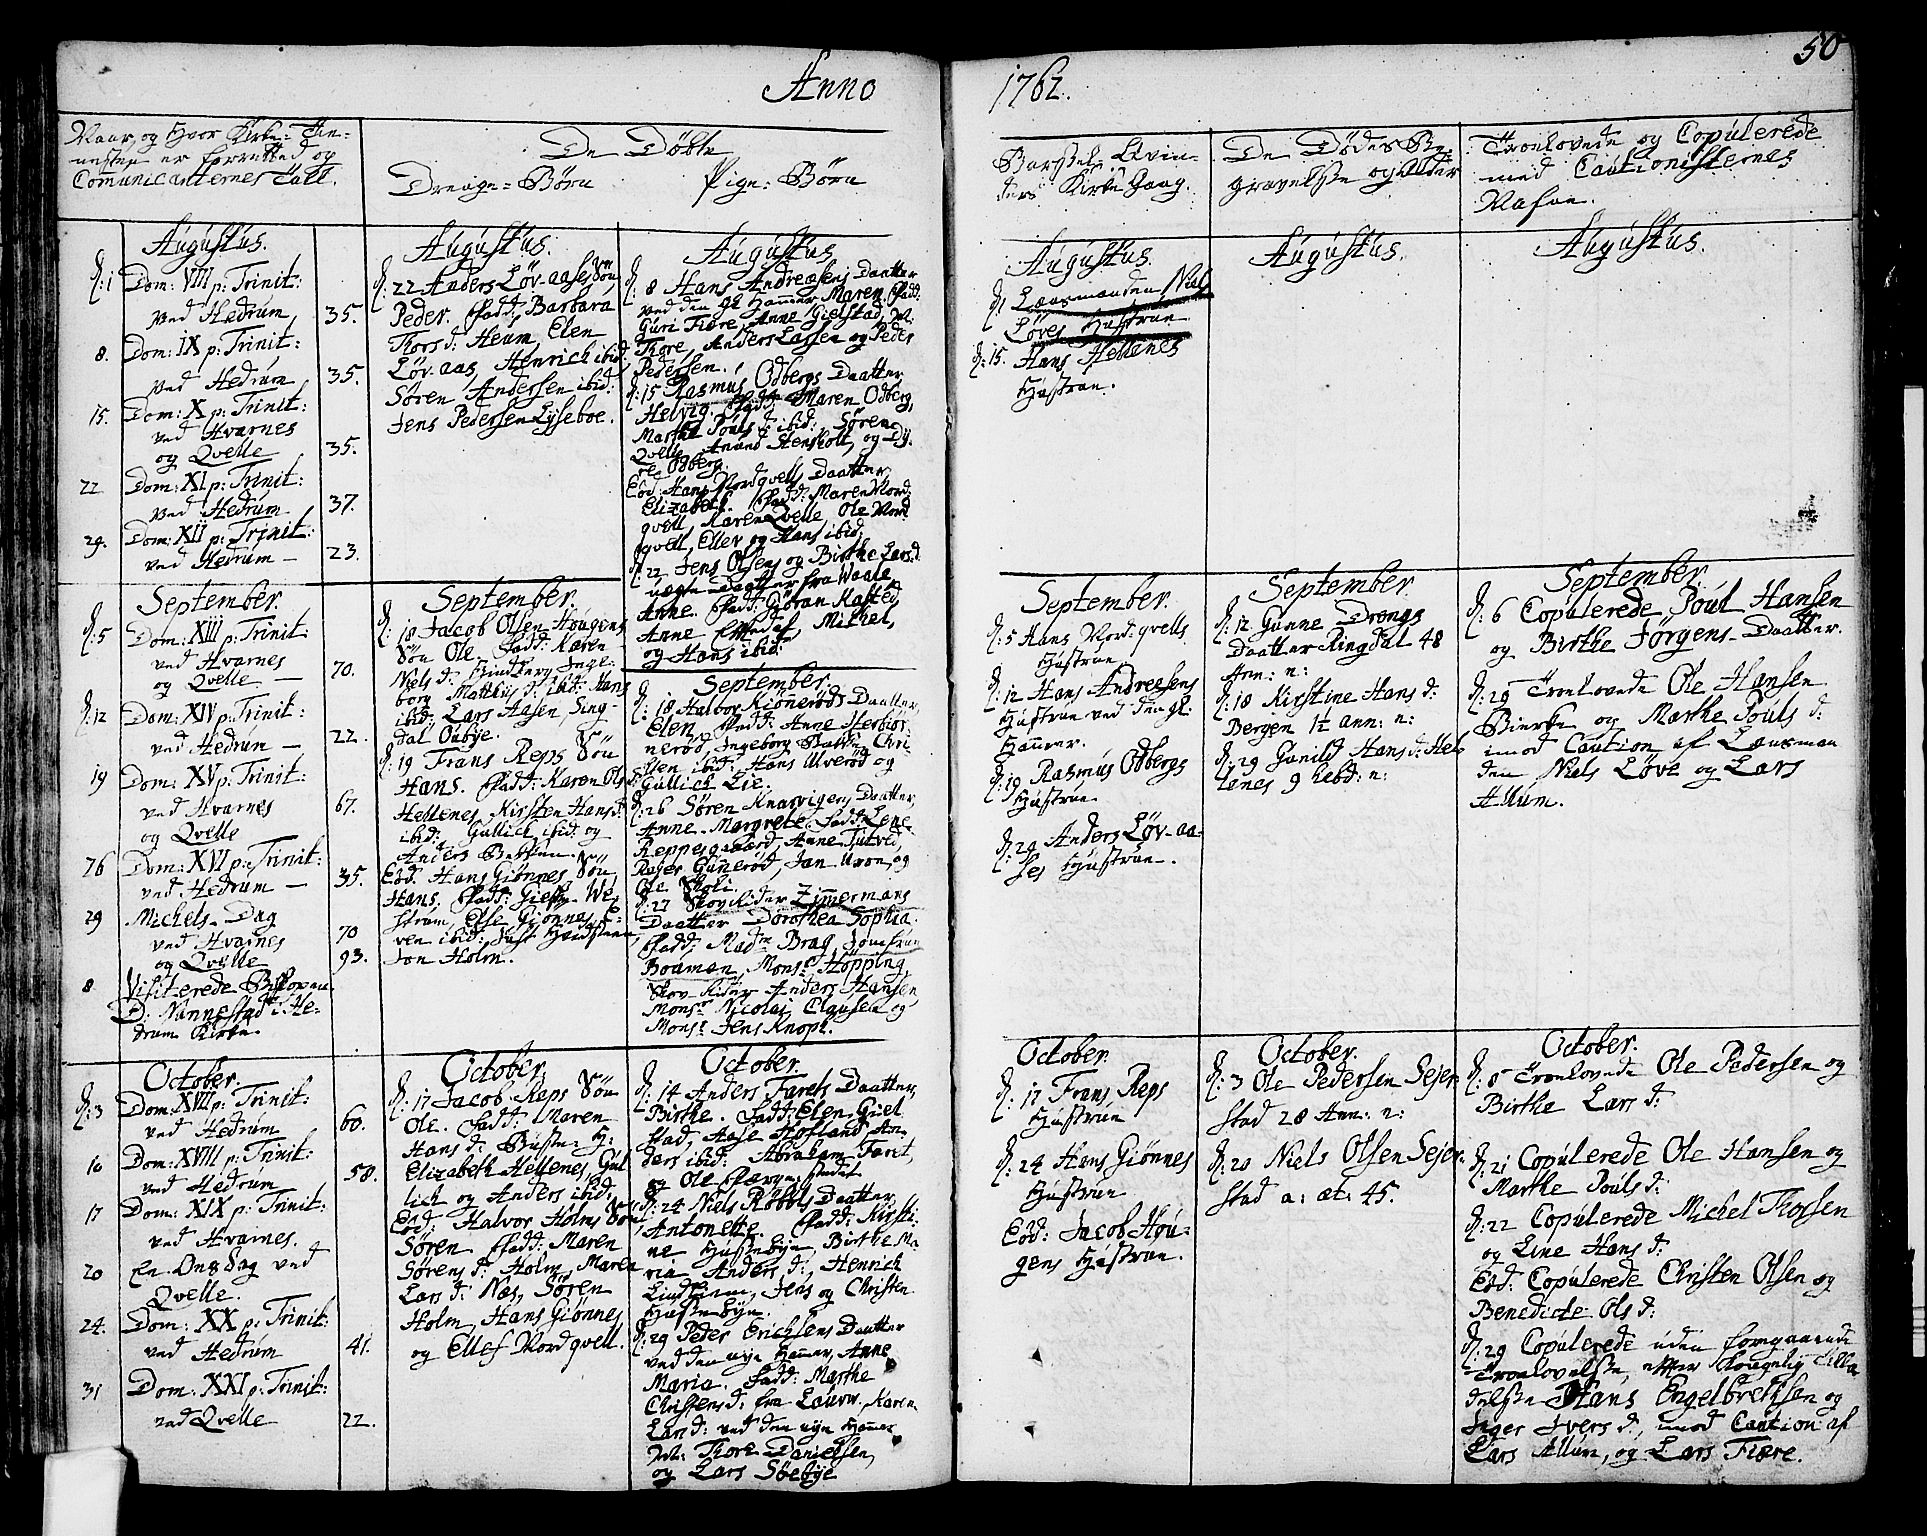 Anno
1762.
50
Naar, og Hvor Kirke-Tie-
nesten er forretted og
Comunicanternes Tall.
De Døbte
Drenge-Børn
Pige-Børn
Barsel-Qvin-
ders Kirke Gang.
De Dødes Be-
gravelse og Alder
Troelovede og Copulerede
med Cautionisternes
Nafne.
Augustus.
d: 1 Dom: VIII p: Trinit:
ved Hedrum 35.
8. Dom: IX p: Trinit:
ved Hedrum 35.
15. Dom: X p: Trinit:
ved Hvarnes
og Qvelle 35.
22 Dom: XI p: Trinit:
ved Hedrum 37.
29. Dom: XII p: Trinit:
ved Hedrum 23.
September.
d: 5 Dom: XIII p: Trinit:
ved Hvarnes
og Qvelle 70.
d: 12 Dom: XIV p: Trinit:
ved Hedrum 22.
19 Dom: XV p: Trinit:
ved Hvarnes 67.
og Qvelle
26 Dom: XVI p: Trinit:
ved Hedrum 35.
29 Michels-Dag
ved Hvarnes 70
og Qvelle 93.
8 Visiterede Biskopen
D: Nannestad i He-
drum Kirke.
October.
d: 3 Dom: XVII p: Trinit:
ved Hedrum 60.
10 Dom: XVIII p: Trinit:
ved Hedrum 58.
17 Dom: XIX p: Trinit:
ved Hvarnes.
20 En Onsdag ved
Qvelle.
24. Dom: XX p: Trinit:
ved Hedrum 41.
31 Dom: XXI p: Trinit:
ved Qvelle 22.
Augustus.
d: 22 Anders Løv-aases Søn
Peder. Fadd: Barbara
Thors d: Heum, Elen
Løv-aas, Henrich ibid:
Søren Andersen ibid:
Jens Pedersen Lyseboe.
September.
d: 18 Jacob Olsen Hougens
Søn Ole. Fadd: Karen
Niels d: Inge-
borg Matthis d: ibid: Hans
ibid: Lars Aasen, Sing-
dal Oubye.
d: 19 Frans Reps Søn
Hans. Fadd: Karen Ols d:
Hellenes, Kirsten Hans d:
ibid: Gullich ibid: og
Anders Bakken.
Eod: Hans Giønnes Søn
Hans. Fadd: We-
strum, Else Giønnes, E-
ven ibid: Just
Jon Holm.
October.
d: 17 Jacob Reps Søn
Ole. Fadd: Maren
Hans d:
Elizabeth Hellenes, Gul
lich og Anders ibid:
Eod: Halvor Holms Søn
Søren. Fadd: Maren
Sørens d: Holm, Maren
Lars d: Næs, Søren
Holm, Hans Giønnes
og Ellef Nordqvell.
Augustus
d: 8 Hans Andreasens Daatter
ved den gl: Hammer Maren. Fadd:
Guri Fiære, Anne Gielstad, M:
Thore, Anders Lassen og Peder
Pedersen.
d: 15 Rasmus Odbergs Daatter
Helvig. Fadd: Maren Odberg,
Marthe Pouls d: ibid: Søren
Qvelle, Anund Stensholt, og Ty-
ge Odberg.
Eod: Hans Nordqvells Daatter
Elizabeth. Fadd: Maren Nord-
qvell, Karen Qvelle, Ole Nord
qvell, Ellev og Hans ibid:
d: 22 Jens Olsens og Birthe Lars d:
uægte Daatter fra Waale
Anne. Fadd: Gøran Kasted,
Anne Michel,
og Hans ibid:
September.
d: 18 Halvor Kiønnerøds Daatter,
Elen. Fadd: Anne Herbiør-
nerød, Ingeborg Bakken, Chri-
sten ibid: Hans Ulverød og
Gullich Lie.
d: 26 Søren Knarvigens Daatter,
Anne-Margrete. Fadd: Lene
Reppesgaard, Anne Tutved,
Rejer Gunnerød, Jan og
Ole Skoli.
d: 27 Skov Rider Zimmermans
Daatter Dorothea Sophia.
Fadd: Madme Brag, Jomfrue
Bouman, Monsr Høpping,
Skov-Rider Anders Hansen,
Monsr Nicolai Clausen og
Monsr Jens Knoph.
October.
d: 14 Anders Farets Daatter,
Birthe. Fadd: Elen Giel
stad, Aase Skofland, An-
ders ibid: Abraham Faret,
og Ole Færgestedet
d: 24 Niels Røbbels Daatter
Antonette. Fadd: Kirsti-
ne Hussebye, Birthe Ma-
ria Anders d:, Henrich
Lindhiem, Jens og Christen
Hussebye.
d: 29 Peder Erichsens Daatter
ved den nye Hammer, Anne
Maria. Fadd: Marthe
Christens d: fra Laurv: Karen
Lars d: ved den nye Hammer
M: Thore Danielsen,
og Lars Søebye
Augustus.
d: 1 Lænsmanden Niels
Løves Hustrue
d: 15. Hans Hellenes
Hustrue.
September.
d: 5 Hans Nordqvells
Hustrue
d: 12 Hans Andreasens
Hustrue ved den gl:
Hammer.
d: 19 Rasmus Odbergs
Hustrue
d: 29 Anders Løv-aa-
ses Hustrue.
October.
d: 17 Frans Reps
Hustrue
d: 24 Hans Giønnes
Hustrue
Eod: Jacob Hou-
gens Hustrue.
Augustus.
September.
d: 12 Gunne Drengs
Daatter Ringdal 48
Ann: n:
d: 18 Kirstine Hans d:
Bergen 1½ ann: n:
d: 29 Gunild Hans d: Hel
lenes 9 hebd: n:
October.
d: 3 Ole Pedersen Sejer
stad 28 Ann: n:
d: 20 Niels Olsen Sejer-
stad a: æt: 45.
Augustus.
September.
d: 6 Copulerede Poul Hansen
og Birthe Jørgens-Daatter.
d: 29 Troelovede Ole Hansen
Bierke og Marthe Pouls d:
imod Caution af Lænsman
den Niels Løve og Lars
Allum.
October.
d: 8 Troelovede Ole Pedersen og
Birthe Lars d:
d: 21 Copulerede Ole Hansen og
Marthe Pouls d:
d: 22 Copulerede Michel Thorsen
og Line Hans d:
Eod: Copulerede Christen Olsen og
Benedicte Ols d:
d: 29 Copulerede uden foregaaende
Troelovelse, efter Kongelig Tilla
delse Hans Engelbretsen og
Inger Ivers d:, imod Caution af
Lars Allum, og Lars Fiære.